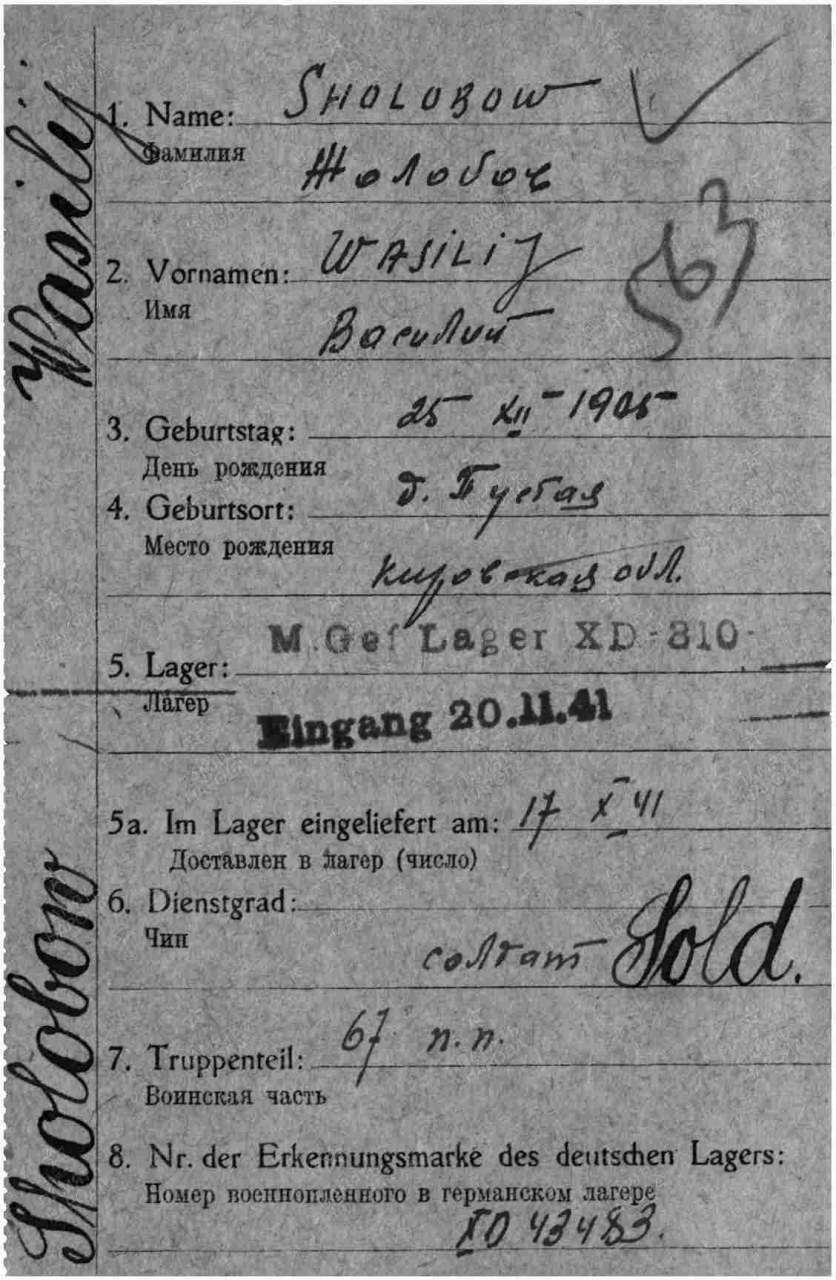 Wasilij
Sholobow
1. Name: SHOLOBOW
Фамилия
Жолобов
563
2. Vornamen: WASiLiJ
Имя
Василий
3. Geburtstag: 25 XII - 1905
День рождения
4. Geburtsort: д. Пустая
Место рождения
Кировская обл.
M.Gef Lager XD-310-
5. Lager:
Лагер
Eingang 20.11.41
5a. Im Lager eingeliefert am: 17 X 41
Доставлен в лагер (число)
6. Dienstgrad:
Чин
солдат Sold.
7. Truppenteil: 67 п.п.
Воинская часть
8. Nr. der Erkennungsmarke des deutschen Lagers:
Номер военнопленного в германском лагере
XD 43483.